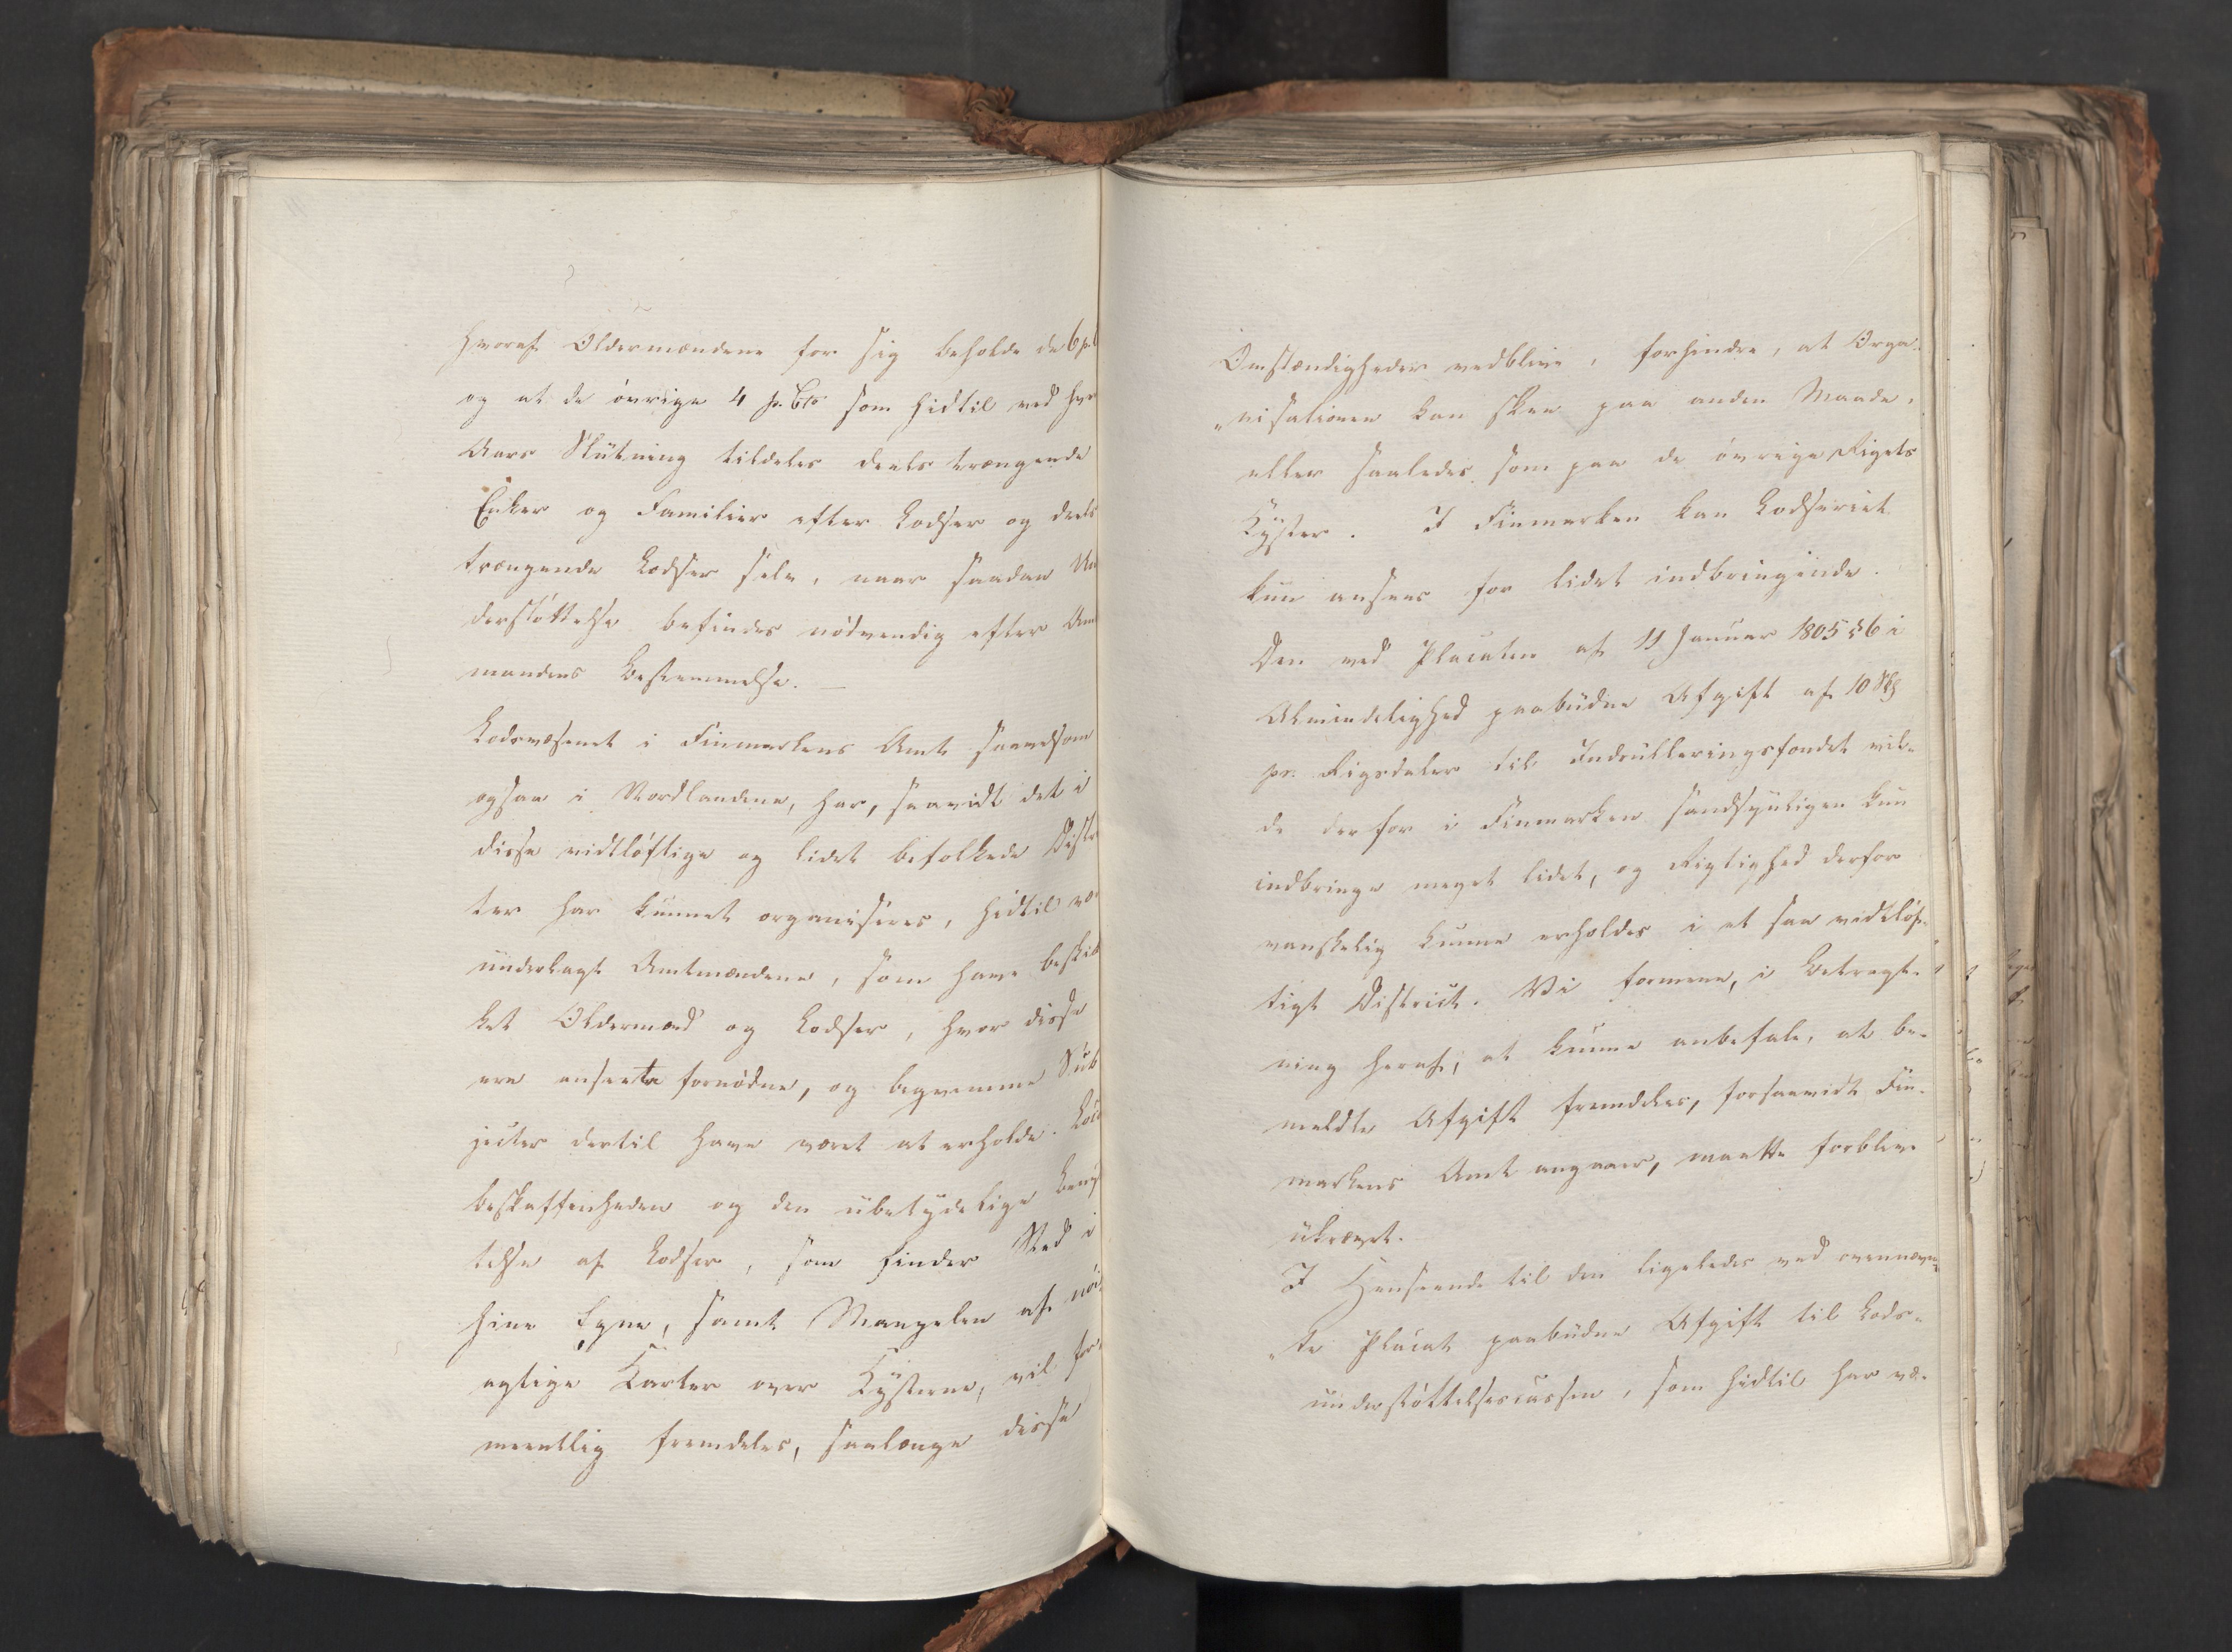 hvoraf Oldermændene for sig beholde de 6 p.C
og at de övrige 4 p. Cto som hidtil ved hve
Aars Slutning tildeles deels trængende
Enker og Familier efter Lodser og deels
trængende Lodser selv, naar saadan Un
derstöttelse befindes nödvendig efter Amt
mandens Bestemmelse. —
Lodsvæsenet i Finmarkens Amt saavelsom
ogsaa i Nordlandene, har, saavidt det i
disse vidtlöftige og lidet befolkede Distr
ter har kunnet organiseres, hidtil væ-
underlagt Amtmændene, som have beskik
ket Oldermænd og Lodser, hvor disse
ere anseete fornödne, og beqvemme Sub
jecter dertil have været at erholde. Local
beskaffenheden og den ubetydelige Beny
telse af Lodser, som finder Sted i
hine Egne, samt Mangelen af nöi-
agtige Karter over Kysterne, vil for-
meentlig fremdeles, saalænge disse
Omstændigheder vedblive, forhindre, at Orga-
"nisationen kan skee paa anden Maade,
eller saaledes som paa de övrige Rigets
Kyster. I Finmarken kan Lodseriet
kun ansees for lidet indbringende.
Den ved Placaten af 11 Januar 1805 § 6 i
Almindelighed paabudne Afgift af 10 Sk
pr. Rigsdaler til Indrulleringsfondet vil-
de derfor i Finmarken sandsynligen kun
indbringe meget lidet, og Rigtighed derfor
vanskelig kunne erholdes i et saa vidtlöf-
tigt District. Vi formene, i Betragt-
ning heraf, at kunne anbefale, at be-
meldte Afgift fremdeles, forsaavidt Fin-
markens Amt angaaer, maatte forblive
ukrævet.
I Henseende til den ligeledes ved ovennævn-
"te Placat paabudne Afgift til Lods-
understöttelsescassen, som hidtil har væ-